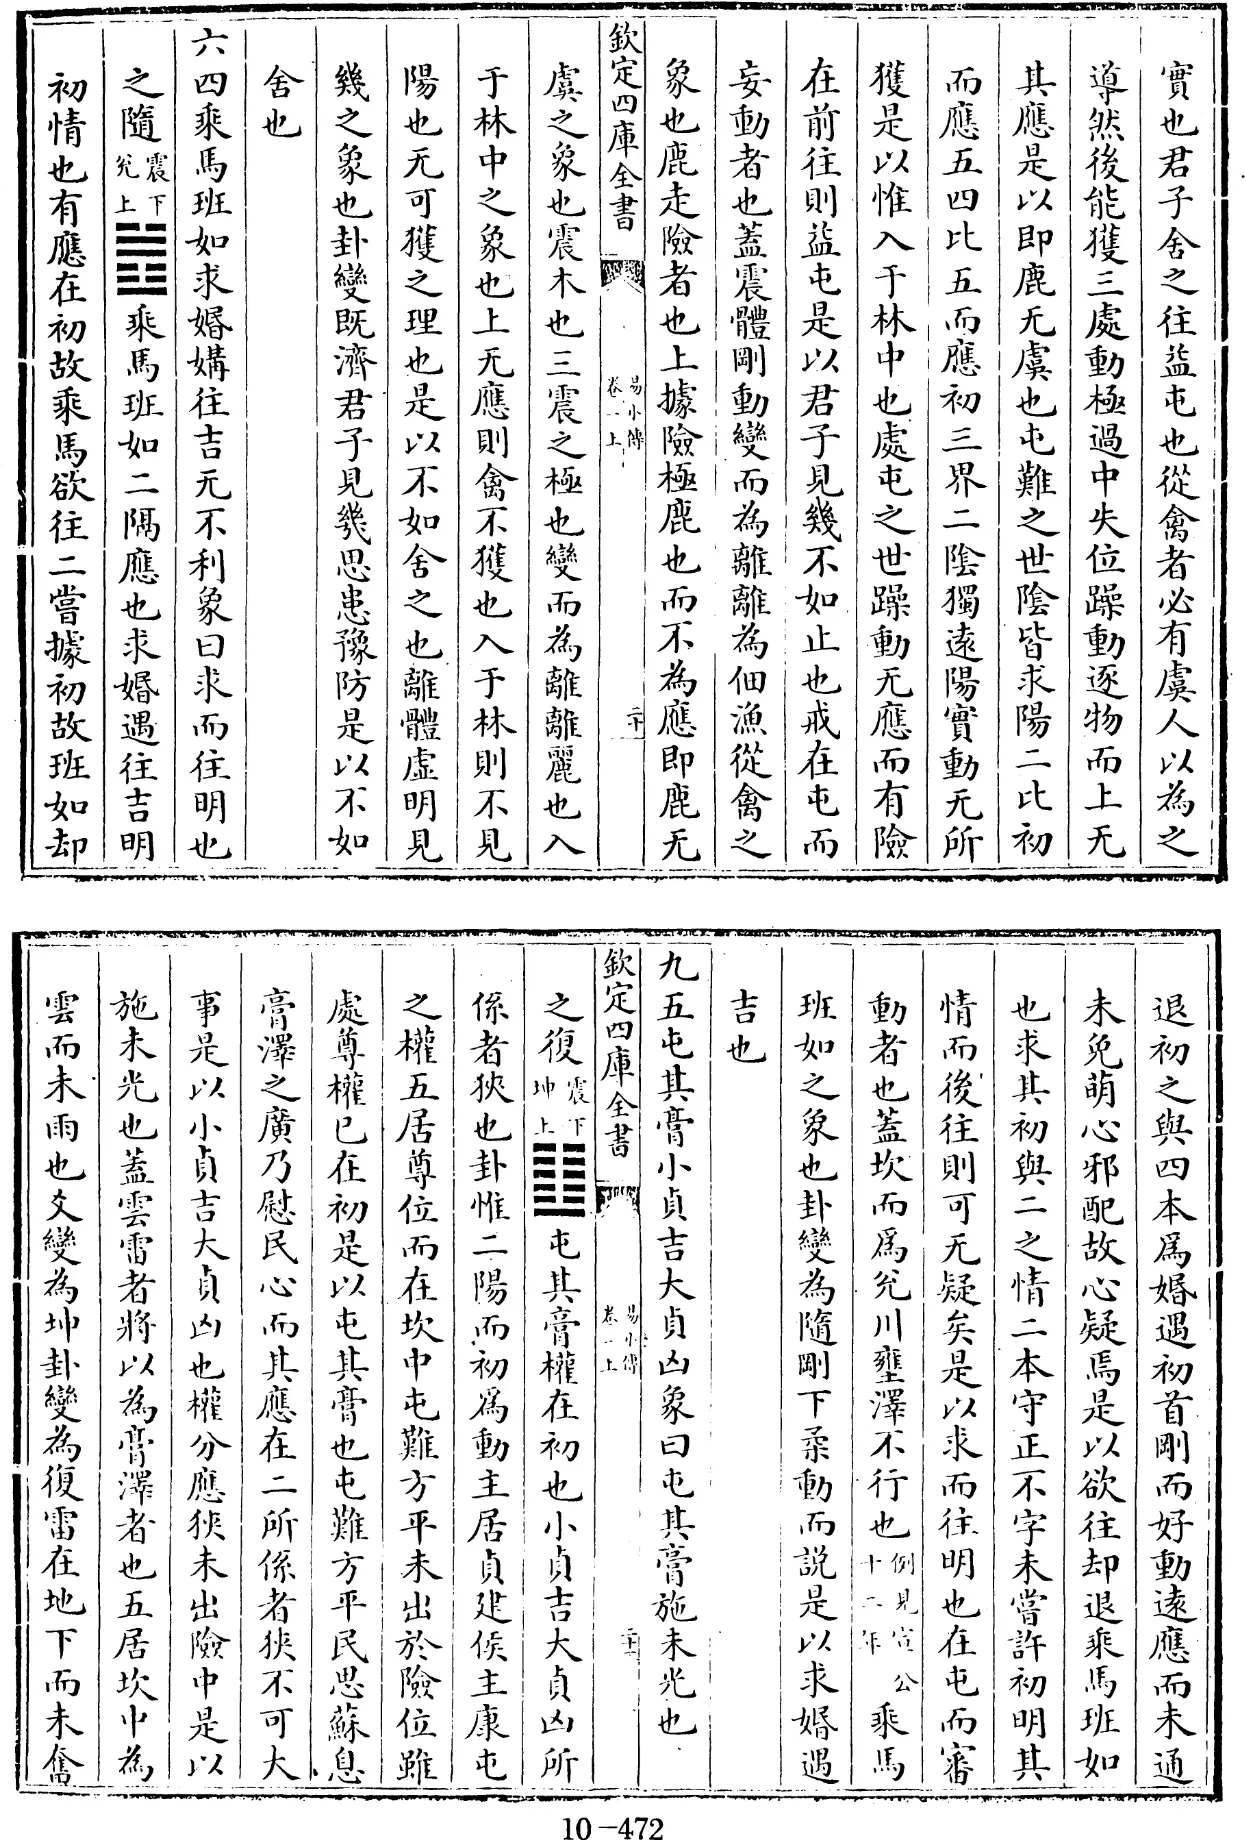 實也君子舍之往益屯也從禽者必有虞人以為之
導然後能獲三處動極過中失位躁動逐物而上无
其應是以即鹿无虞也屯難之世陰皆求陽二比初
而應五四比五而應初三界二陰獨遠陽實動无所
獲是以惟入于林中也處屯之世躁動无應而有險
在前往則益屯是以君子見幾不如止也戒在屯而
妄動者也蓋震體剛動變而為離離為佃漁從禽之
象也鹿走險者也上據險極鹿也而不為應即鹿无
欽定四庫全書
易小傳
卷一上
二十
虞之象也震木也三震之極也變而為離離麗也入
于林中之象也上无應則禽不獲也入于林則不見
陽也无可獲之理也是以不如舍之也離體虛明見
幾之象也卦變既濟君子見幾思患豫防是以不如
舍也
六四乘馬班如求婚媾往吉无不利象曰求而往明也
之隨震下兌上乘馬班如二隔應也求婚遇往吉明
初情也有應在初故乘馬欲往二嘗據初故班如却
退初之與四本為婚遇初首剛而好動遠應而未通
未免萌心邪配故心疑焉是以欲往却退乘馬班如
也求其初與二之情二本守正不字未嘗許初明其
情而後往則可无疑矣是以求而往明也在屯而審
動者也蓋坎而為兌川壅澤不行也例見宣公十二年乘馬
班如之象也卦變為隨剛下柔動而說是以求婚遇
吉也
九五屯其膏小貞吉大貞凶象曰屯其膏施未光也
欽定四庫全書
易小傳
卷一上
二十一
之復震下坤上屯其膏權在初也小貞吉大貞凶所
係者狹也卦惟二陽而初為動主居貞建侯主康屯
之權五居尊位而在坎中屯難方平未出於險位雖
處尊權已在初是以屯其膏也屯難方平民思蘇息
膏澤之廣乃慰民心而其應在二所係者狹不可大
事是以小貞吉大貞凶也權分應狹未出險中是以
施未光也蓋雲雷者將以為膏澤者也五居坎中為
雲而未雨也爻變為坤卦變為復雷在地下而未奮
10-472